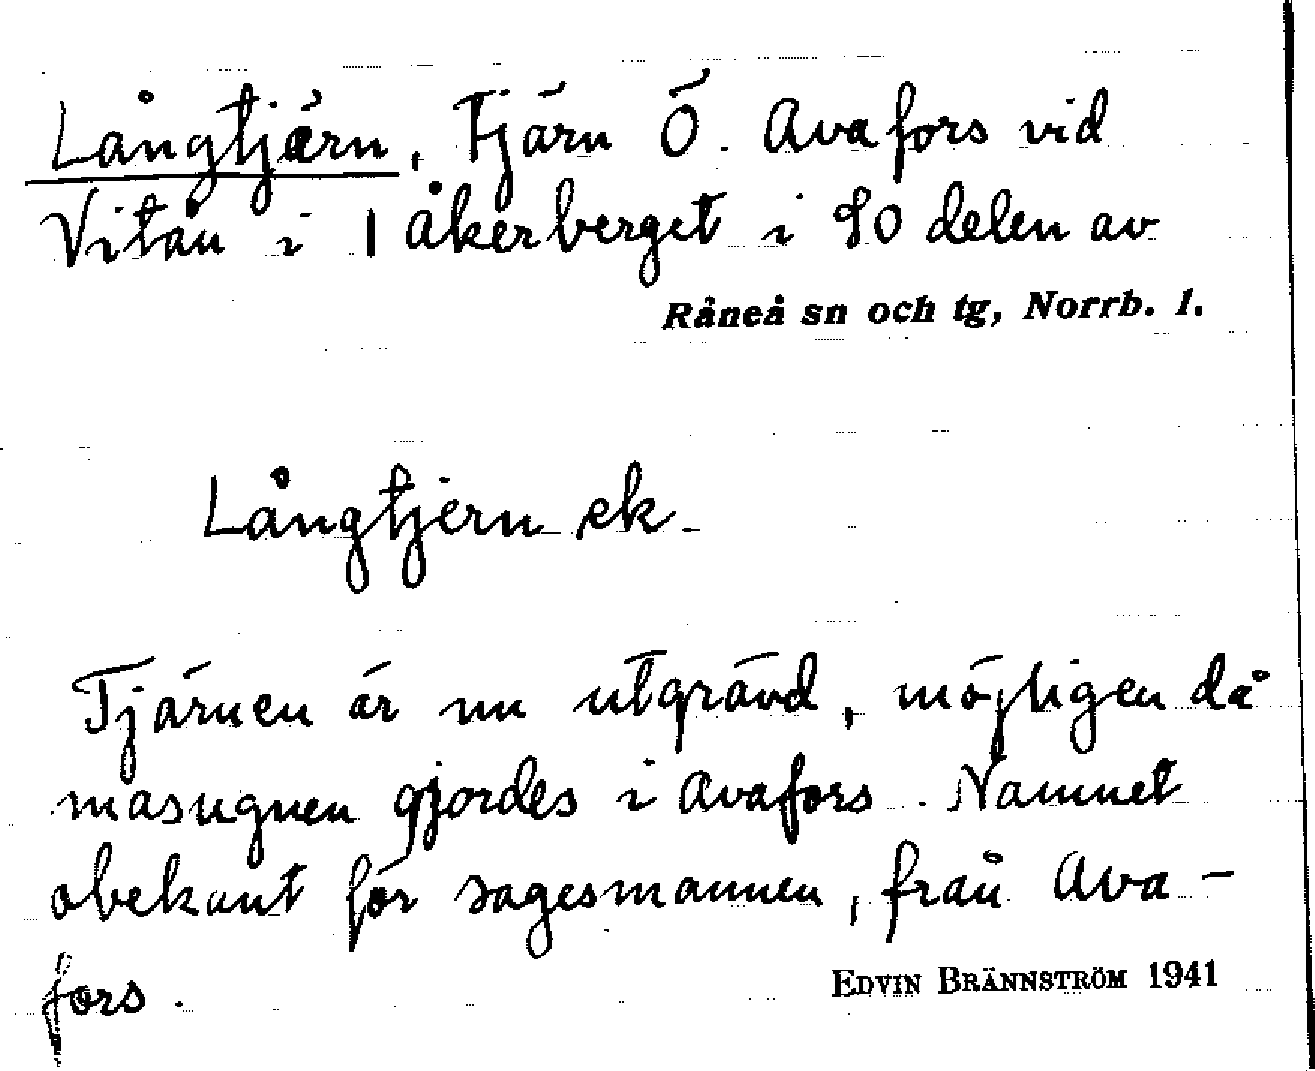 Långtjärn, Tjärn Ö. Avafors vid
Vitån i 1 Åkerberget i SO delen av
Råneå sn och tg, Norrb. l.
Långtjern ek.
Tjärnen är nu utgrävd, möjligen då
masugnen gjordes i Avafors. Namnet
obekant för sagesmannen, från Ava-
fors.
EDVIN BRÄNNSTRÖM 1941